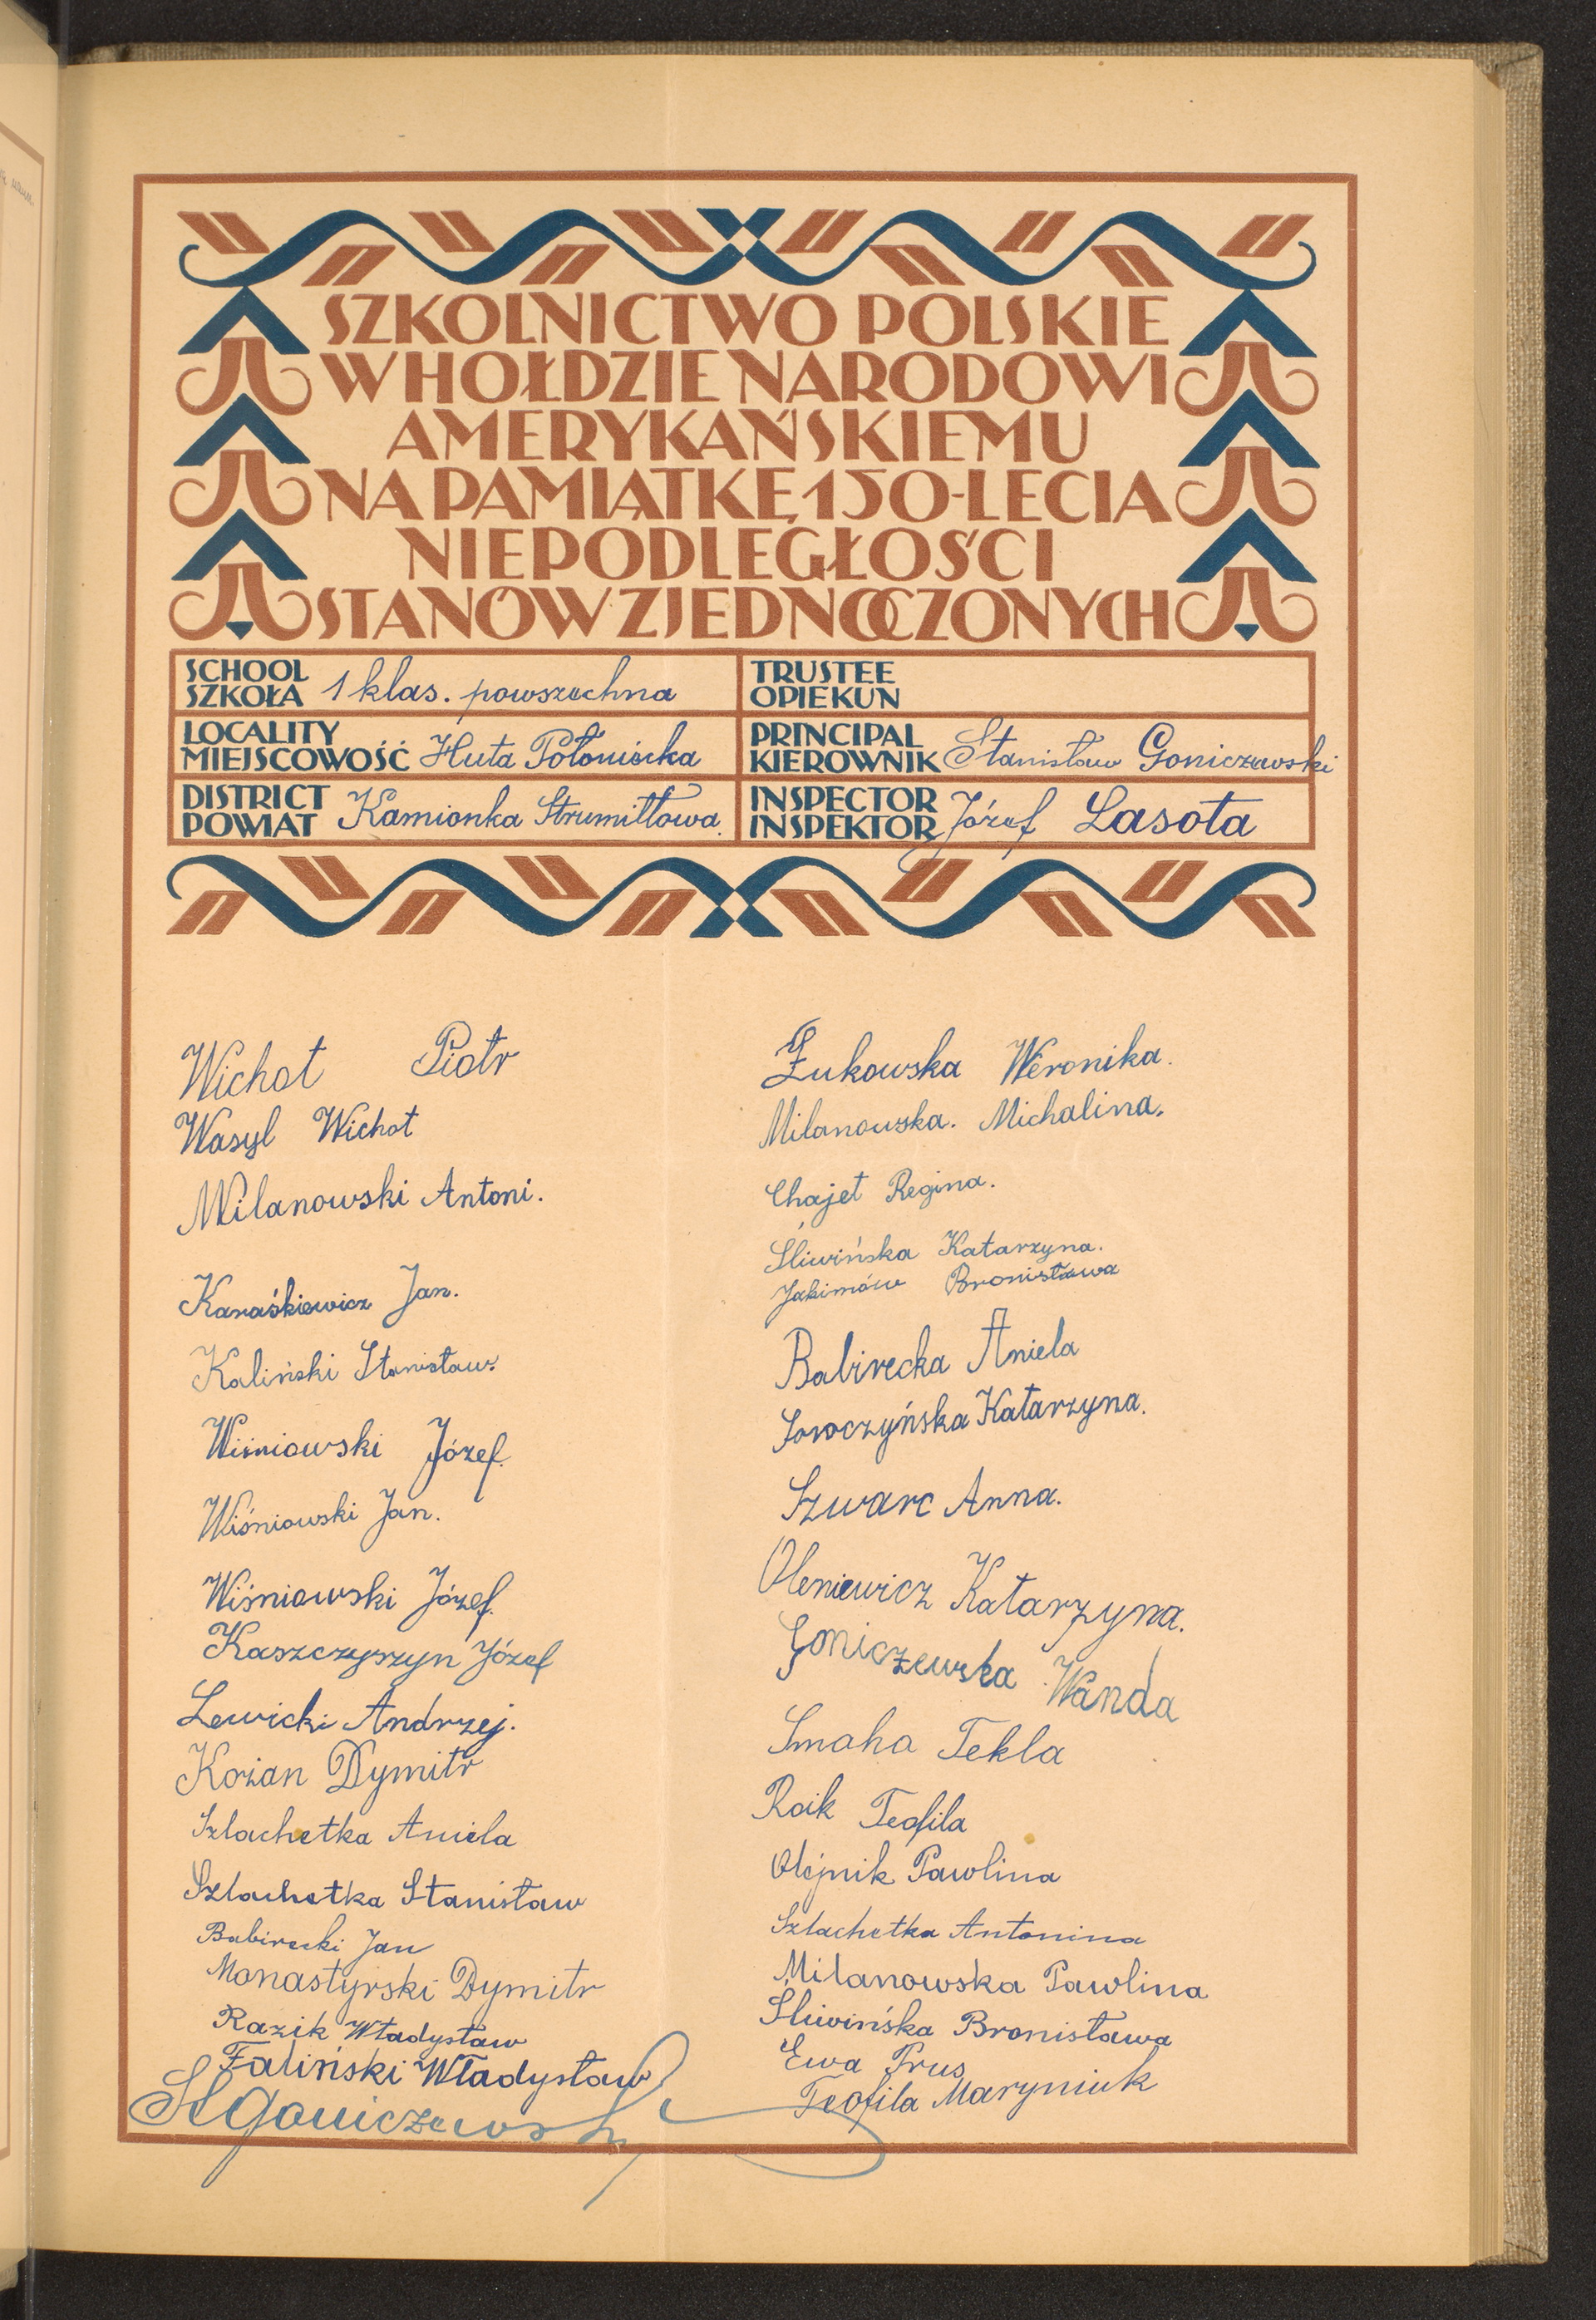 SZKOLNICTWO POLSKIE
W HOŁDZIE NARODOWI
AMERYKAŃSKIEMU
NA PAMIĄTKĘ 150-LECIA
NIEPODLEGŁOŚCI
STANÓW ZJEDNOCZONYCH
SCHOOL
SZKOŁA 1 klas. powszechna
TRUSTEE
OPIEKUN
LOCALITY
MIEJSCOWOŚĆ Huta Połoniecka
PRINCIPAL
KIEROWNIK Stanisław Goniczewski
DISTRICT
POWIAT Kamionka Strumiłłowa.
INSPECTOR
INSPEKTOR Józef Lasota
Wichot Piotr
Wasyl Wichot
Milanowski Antoni.
Karaśkiewicz Jan.
Kaliński Stanisław.
Wiśniowski Józef.
Wiśniowski Jan.
Wiśniowski Józef.
Kaszczyszyn Józef
Lewicki Andrzej.
Kożan Dymitr
Szlachetka Aniela
Szlachetka Stanisław
Babirecki Jan
Monastyrski Dymitr
Razik Władysław
Faliński Władysław
St Goniczewski
Żukowska Weronika.
Milanowska. Michalina.
Chajet Regina.
Śliwińska Katarzyna.
Jakimów Bronisława
Babirecka Aniela
Soroczyńska Katarzyna.
Szwarc Anna.
Oleniewicz Katarzyna.
Goniczewska Wanda
Smaha Tekla
Roik Teofila
Olejnik Pawlina
Szlachetka Antonina
Milanowska Pawlina
Śliwińska Bronisława
Ewa Prus
Teofila Maryniuk